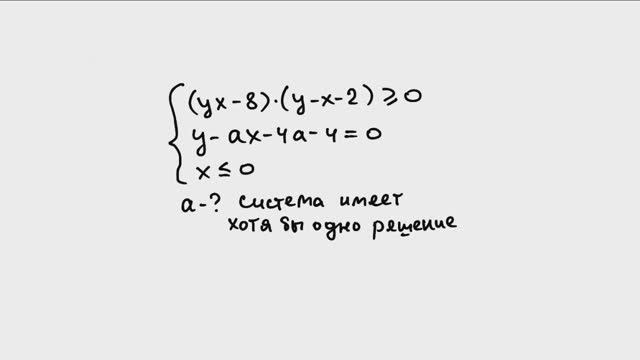 (yx-8)·(y-x-2)≥0
y-ax-4a-4=0
x≤0
a-? система имеет
хотя бы одно решение